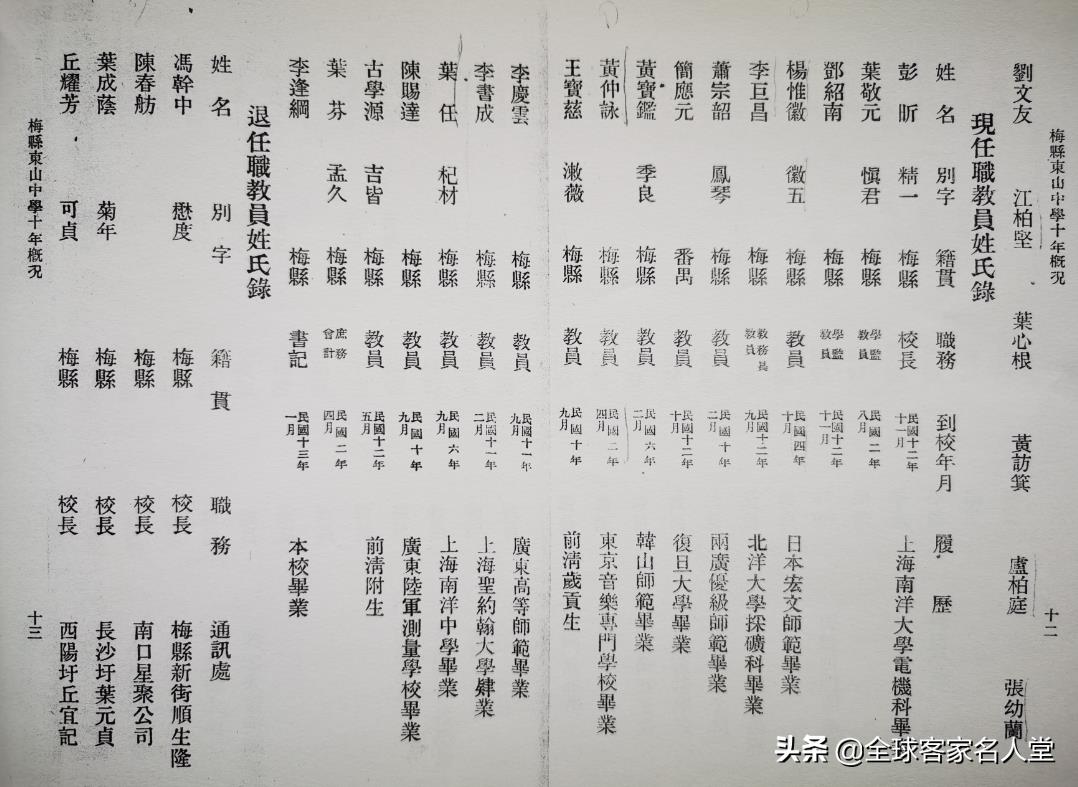 梅縣東山中學十年概况
十二
劉文友 江柏堅 葉心根 黃訪箕 盧柏庭 張幼蘭
現任職教員姓氏錄
姓名 別字 籍貫 職務 到校年月 履歷
彭昕 精一 梅縣 校長 民國十二年十一月 上海南洋大學電機科畢
葉敬元 慎君 梅縣 學監教員 民國二年八月
鄧紹南 梅縣 學監教員 民國十二年十一月
楊惟徽 徽五 梅縣 教員 民國四年十月 日本宏文師範畢業
李巨昌 梅縣 教務員教員 民國十二年九月 北洋大學採礦科畢業
蕭宗韶 鳳琴 梅縣 教員 民國十年二月 兩廣優級師範畢業
簡應元 番禺 教員 民國十二年十月 復旦大學畢業
黃寶鑑 季良 梅縣 教員 民國六年二月 韓山師範畢業
黃仲詠 梅縣 教員 民國二年四月 東京音樂專門學校畢業
王寶慈 漱薇 梅縣 教員 民國十年九月 前淸歲貢生
李慶雲 梅縣 教員 民國十一年九月 廣東高等師範畢業
李書成 梅縣 教員 民國十一年二月 上海聖約翰大學肄業
葉任 杞材 梅縣 教員 民國六年九月 上海南洋中學畢業
陳賜達 梅縣 教員 民國十年九月 廣東陸軍測量學校畢業
古學源 吉皆 梅縣 教員 民國十二年五月 前淸附生
葉芬 孟久 梅縣 庶務會計 民國二年四月
李逢綱 梅縣 書記 民國十三年一月 本校畢業
退任職教員姓氏錄
姓名 別字 籍貫 職務 通訊處
馮幹中 懋度 梅縣 校長 梅縣新街順生隆
陳春舫 梅縣 校長 南口星聚公司
葉成蔭 菊年 梅縣 校長 長沙圩葉元貞
丘耀芳 可貞 梅縣 校長 西陽圩丘宜記
梅縣東山中學十年概况
十三
头条 @全球客家名人堂